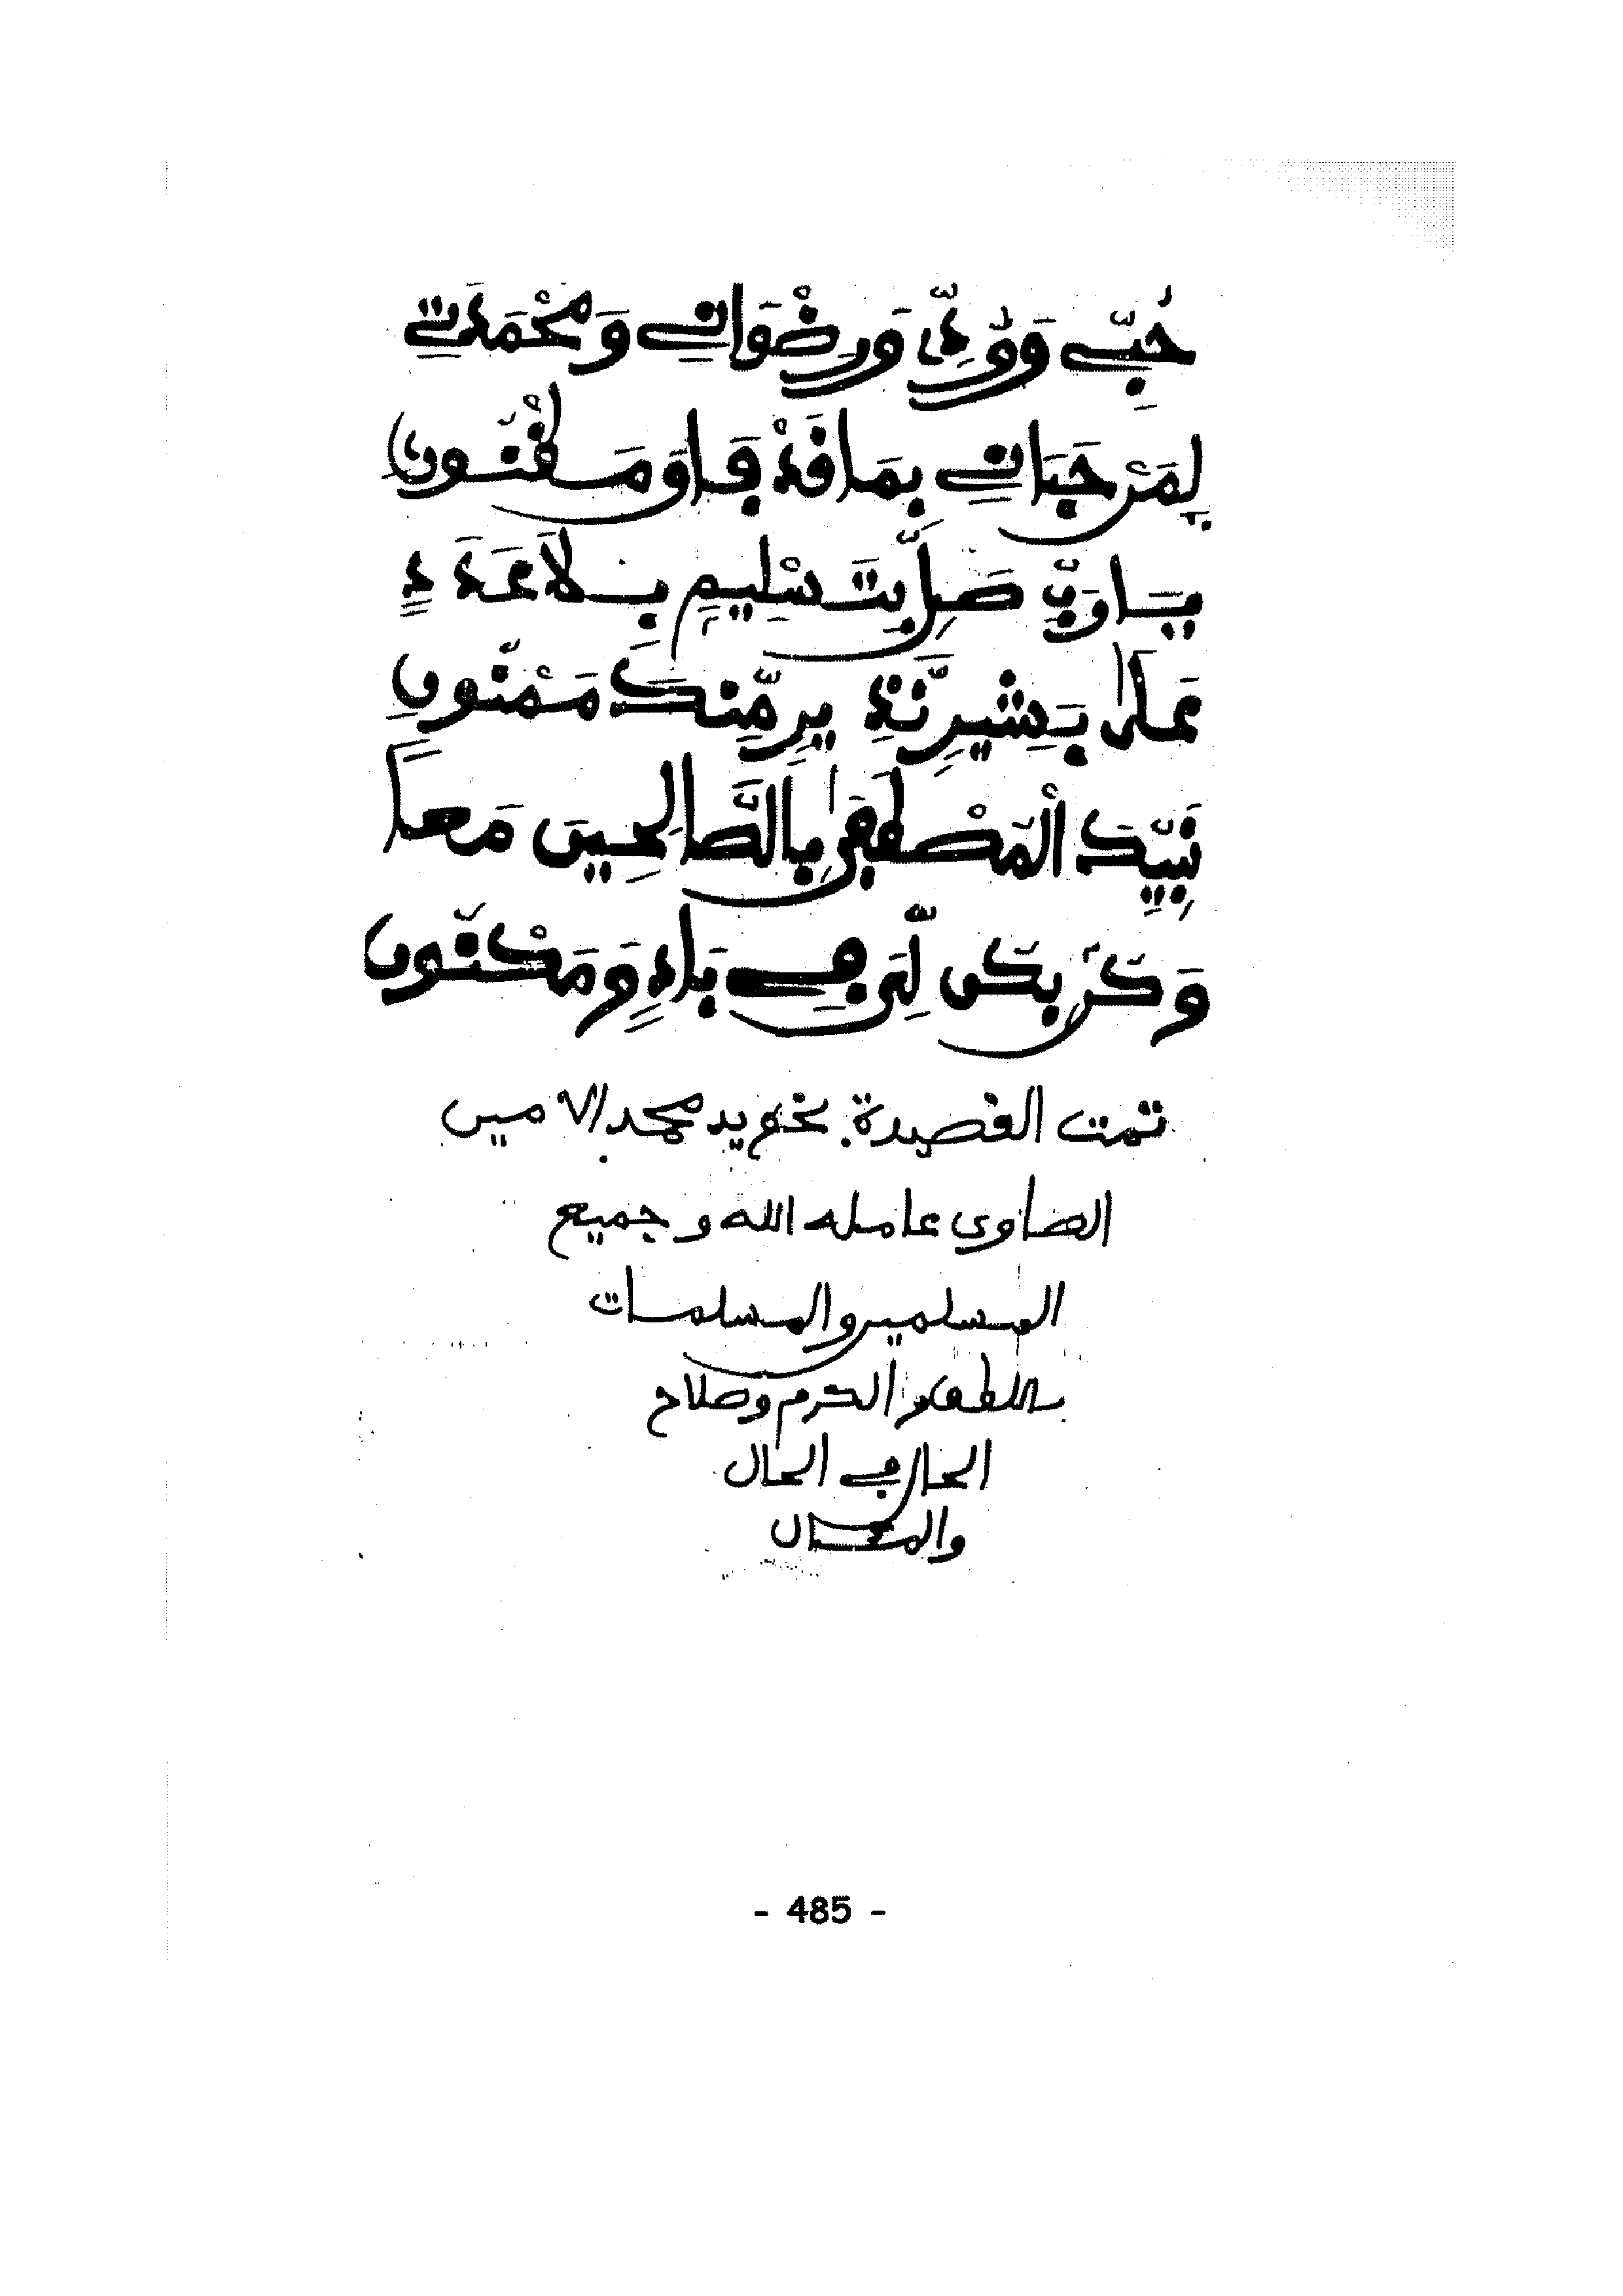 حُبِّي وَوُدِّي وَرِضْوَانِي وَمَحْمَدَتِي
لِمَنْ حَبَانِي بِمَا قَدْ فَاقَ مَسْنُونَ
يَا رَبِّ صَلِّ بِتَسْلِيمٍ بِلَا عَدَدٍ
عَلَى بَشِيرٍ نَذِيرٍ مِّنكَ مَمْنُونِ
نَبِيِّكَ الْمُصْطَفَى بِالصَّالِحِينَ مَعًا
وَكُن بِكُن لِّي فِي بَادٍ وَمَكْنُونِ
تمت القصيدة بخط يد محمد الامين
الضاوى عامله الله وجميع
المسلمين والمسلمات
باللطف والكرم وصلاح
الحال في الحال
والمئال
- 485 -